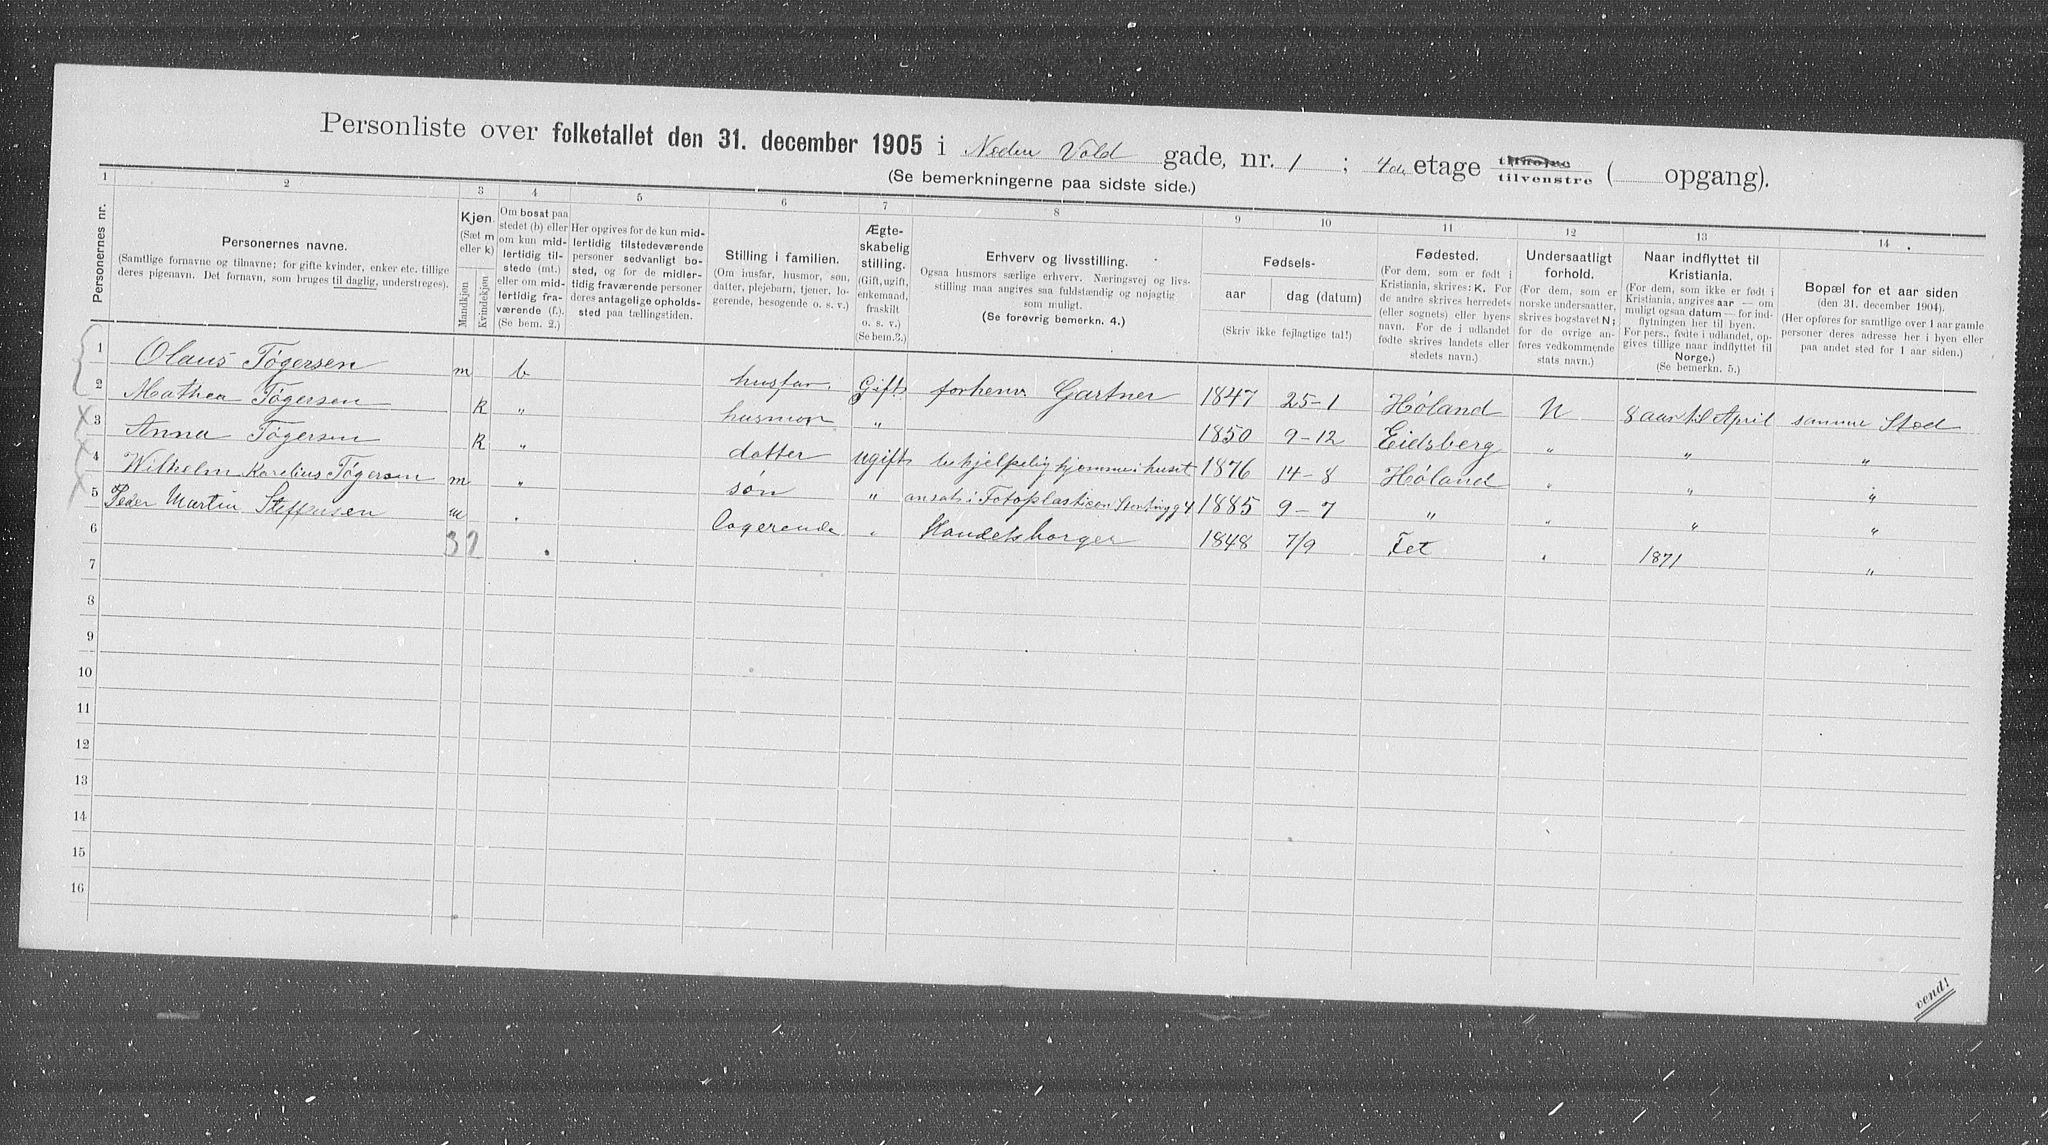 Personliste over folketallet den 31. december 1905 i Nedre Vold gade, nr. 1 ; 4de etage tilhøire tilvenstre ( opgang).
(Se bemerkningerne paa sidste side.)
1 2 3 4 5 6 7 8 9 10 11 12 13 14
Personernes nr.
Personernes navne.
(Samtlige fornavne og tilnavne; for gifte kvinder, enker etc. tillige deres pigenavn. Det fornavn, som bruges til daglig, understreges).
Kjøn.
(Sæt m eller k)
Mandkjøn
Kvindekjøn
Om bosat paa stedet (b) eller om kun midlertidig tilstede (mt.) eller om midlertidig fraværende (f.). (Se bem. 2.)
Her opgives for de kun midlertidig tilstedeværende personer sedvanligt bosted, og for de midlertidig fraværende personer deres antagelige opholdssted paa tællingstiden.
Stilling i familien.
(Om husfar, husmor, søn, datter, plejebarn, tjener, logerende, besøgende o. s. v.)
Ægteskabelig stilling.
(Gift, ugift, enkemand, fraskilt o. s. v.) (Se bem. 3.)
Erhverv og livsstilling.
Ogsaa husmors særlige erhverv. Næringsvej og livsstilling maa angives saa fuldstændig og nøjagtig som muligt.
(Se forøvrig bemerkn. 4.)
Fødsels-
aar
dag (datum)
(Skriv ikke fejlagtige tal!)
Fødested.
(For dem, som er født i Kristiania, skrives: K. For de andre skrives herredets (eller sognets) eller byens navn. For de i udlandet fødte skrives landets eller stedets navn.)
Undersaatligt forhold.
(For dem, som er norske undersaatter, skrives bogstavet N; for de øvrige anføres vedkommende stats navn.)
Naar indflyttet til Kristiania.
(For dem, som ikke er født i Kristiania, angives aar — om muligt ogsaa datum — for indflytningen her til byen. For pers., fødte i udlandet, opgives tillige naar indflyttet til Norge.)
(Se bemerkn. 5.)
Bopæl for et aar siden
(den 31. december 1904).
(Her opføres for samtlige over 1 aar gamle personer deres adresse her i byen eller paa andet sted for 1 aar siden.)
1 Olaus Tøgersen m b husfar. Gift forhenv Gartner 1847 25-1 Høland N 8 aar til April samme Sted
2 Mathea Tøgersen K " husmor " 1850 9-12 Eidsberg " " "
3 Anna Tøgersen K " datter ugift behjelpelig hjemme i huset 1876 14-8 Høland " " "
4 Wilhelm Karelius Tøgersen m " søn " ansat i Fotoplasticon Stortingg 4 1885 9-7 " " " "
5 Peder Martin Steffensen m . logerende " Handelsborger 1848 7/9 Fet " 1871 "
6 3 2
7
8
9
10
11
12
13
14
15
16
vend!